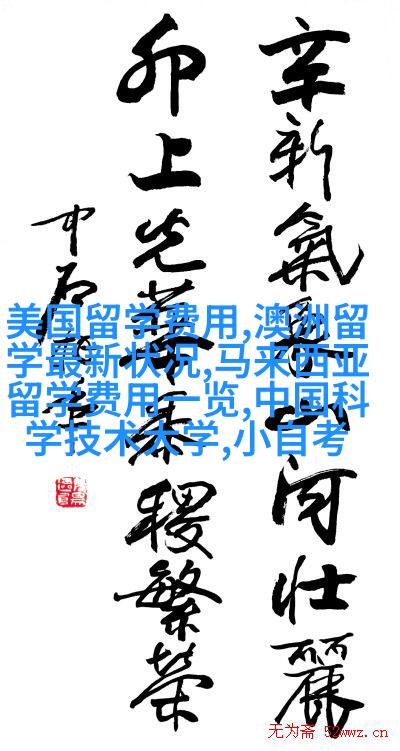 辛新氣象山河壯麗
卯上光華黍稷繁榮
中石
美国留学费用,澳洲留
学最新状况,马来西亚
留学费用一览,中国科
学技术大学,小自考
无为斋 52wwz.cn